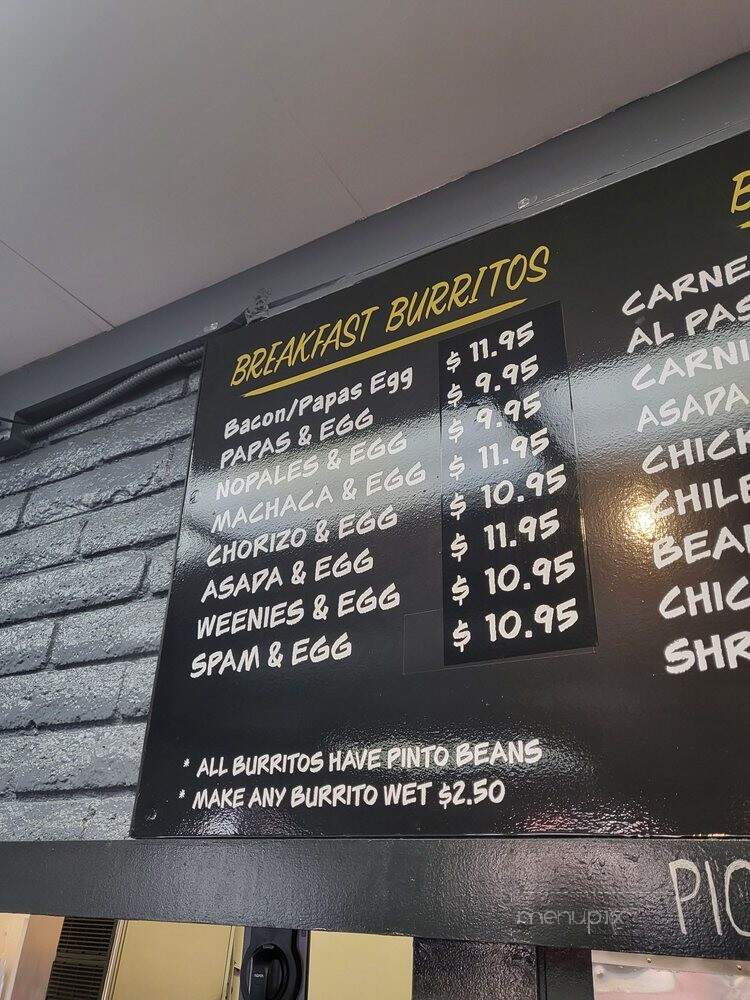 BREAKFAST BURRITOS
Bacon/Papas Egg $ 11.95
PAPAS & EGG $ 9.95
NOPALES & EGG $ 9.95
MACHACA & EGG $ 11.95
CHORIZO & EGG $ 10.95
ASADA & EGG $ 11.95
WEENIES & EGG $ 10.95
SPAM & EGG $ 10.95
* ALL BURRITOS HAVE PINTO BEANS
* MAKE ANY BURRITO WET $2.50
B
CARNE
AL PAS
CARNI
ASADA
CHICK
CHILE
BEA
CHIC
SHR
PIC
menupix